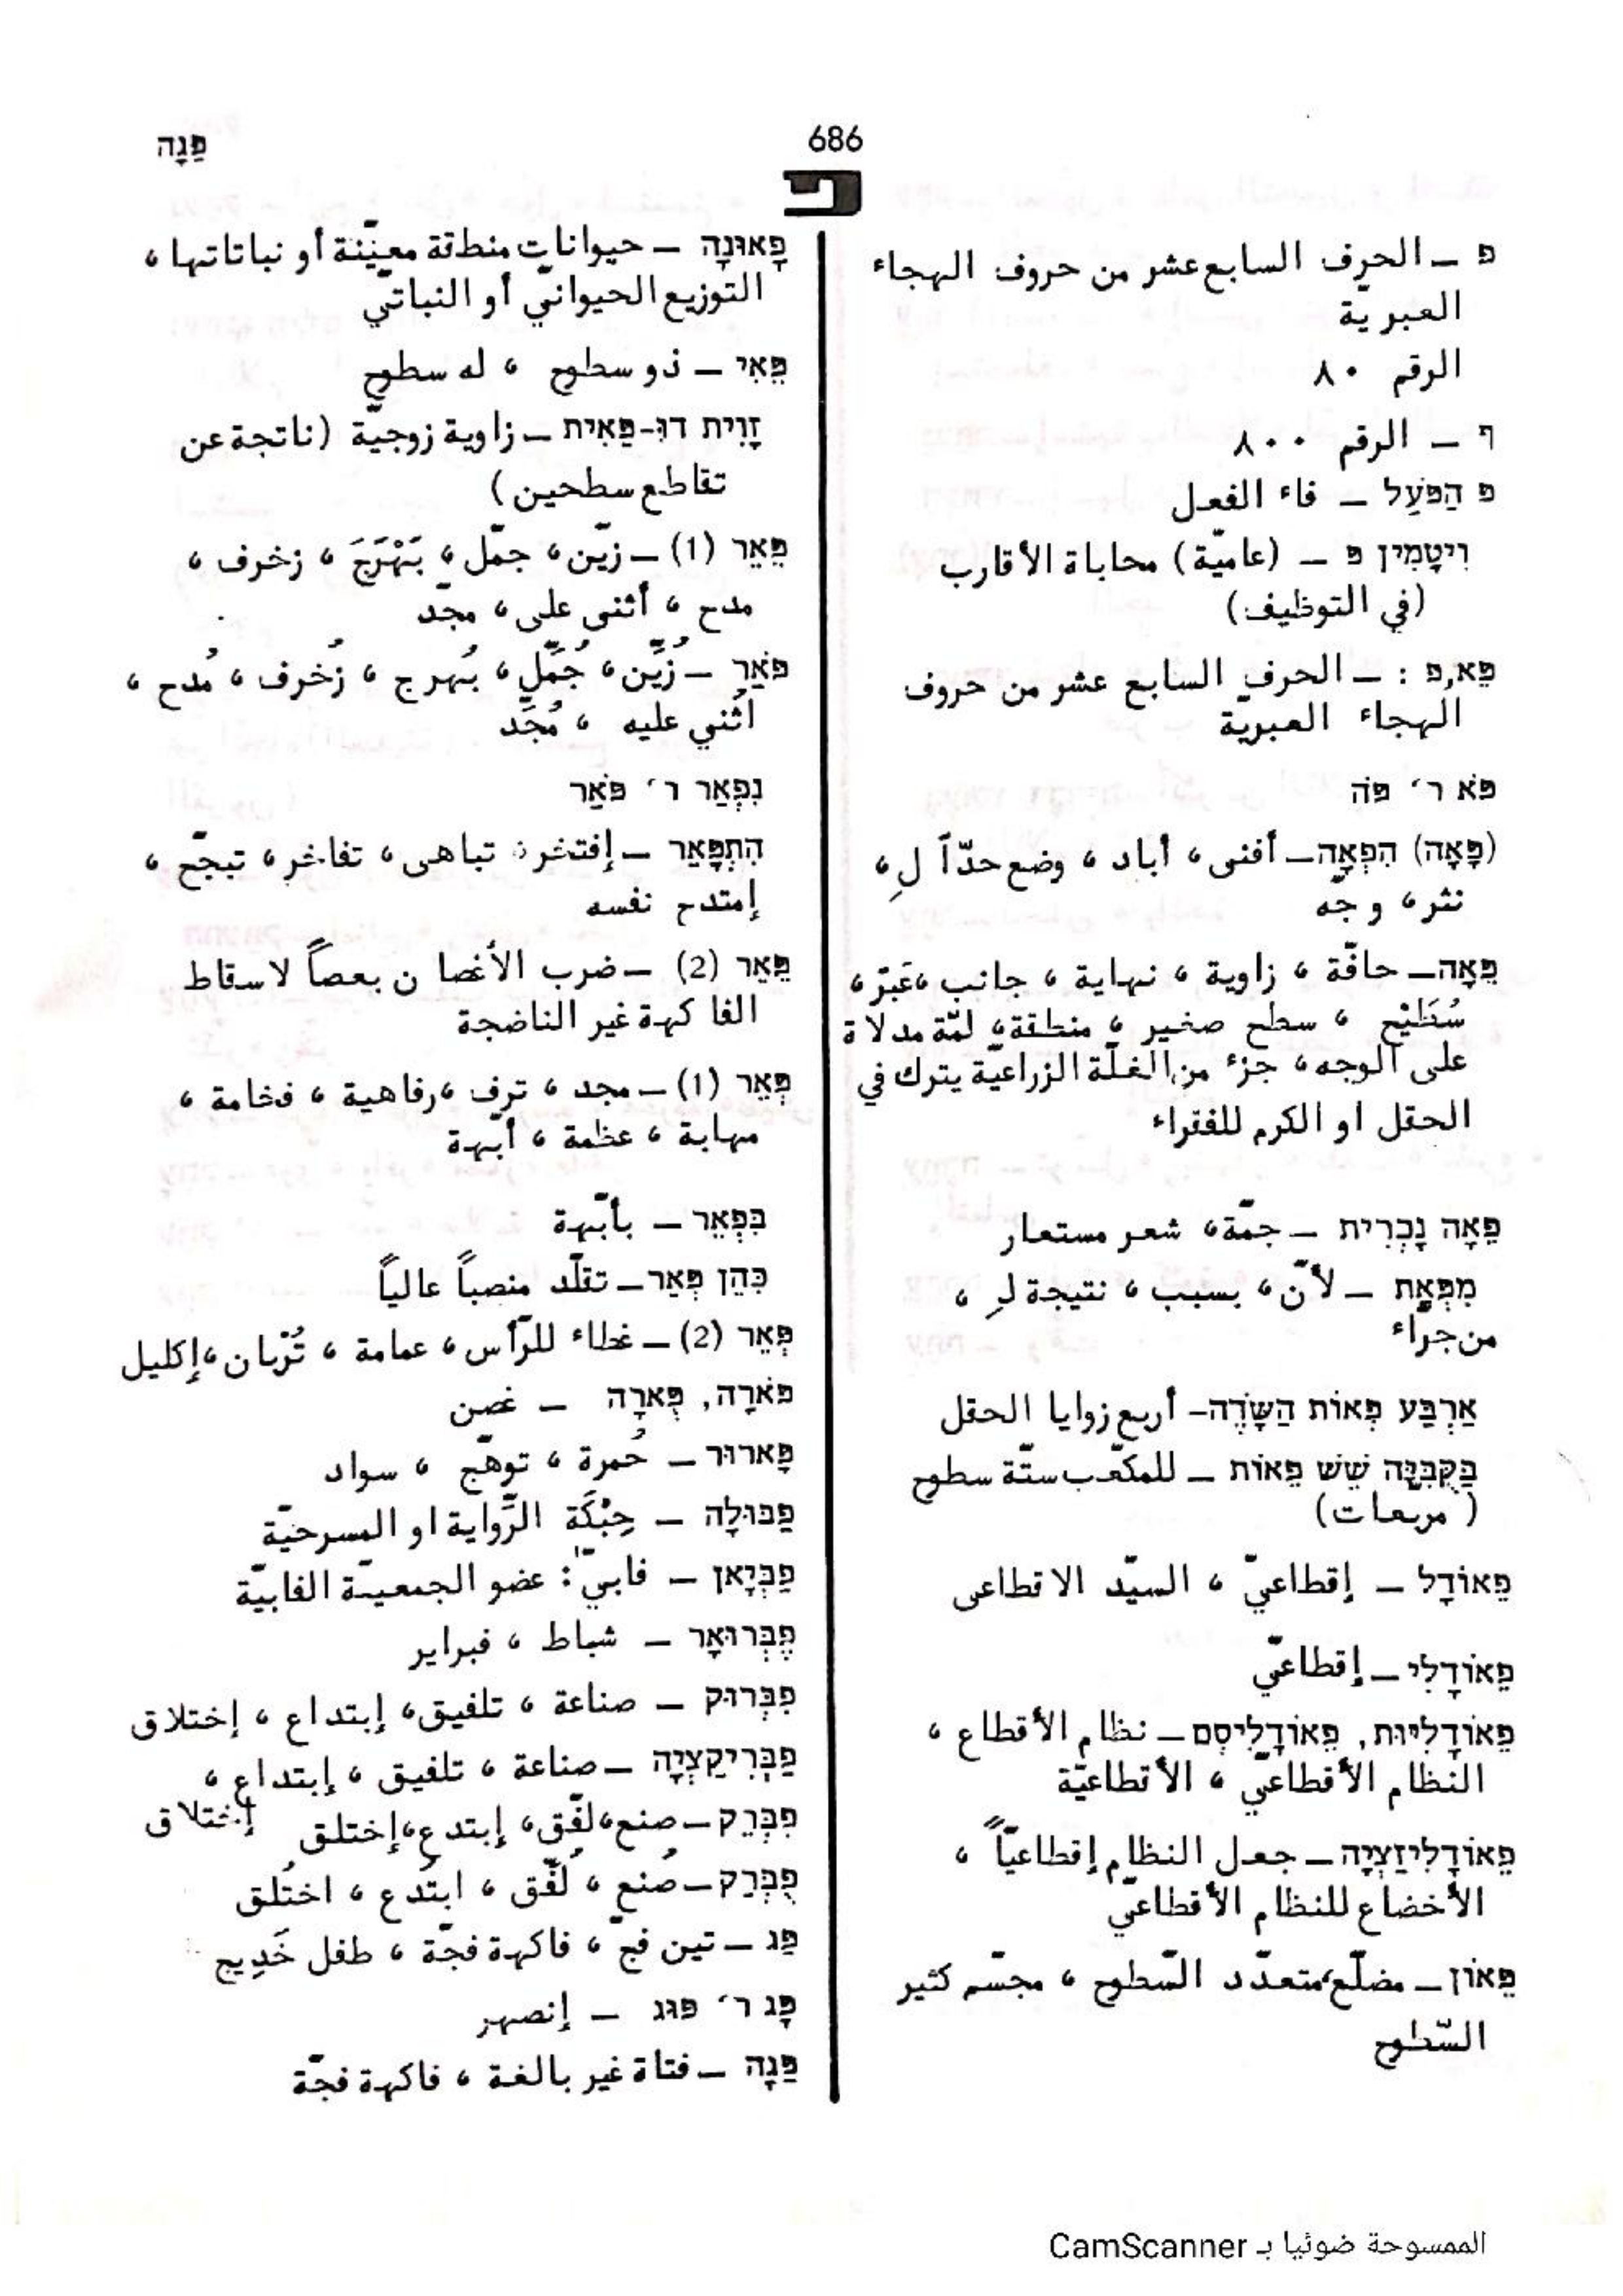 פַּגָּה
686
פ
פ – الحرف السابع عشر من حروف الهجاء
العبريّة
الرقم ٨٠
ף – الرقم ٨٠٠
פ הַפֹּעַל – فاء الفعل
וִיטָמִין פּ – (عاميّة) محاباة الأقارب
(في التوظيف)
פֵּא,פ : – الحرف السابع عشر من حروف
الهجاء العبريّة
פֹּא ר׳ פֹּה
(פָּאָה) הִפְאָה – أفنى، أباد، وضع حدّاً لِ،
نثر، وجّه
פֵּאָה – حافّة، زاوية، نهاية، جانب، عَبْرَ،
سُطَيْح، سطح صغير، منطقة، لمّة مدلاة
على الوجه، جزء من الغلّة الزراعيّة يترك في
الحقل او الكرم للفقراء
פֵּאָה נָכְרִית – جمّة، شعر مستعار
מִפְּאַת – لأنّ، بسبب، نتيجة لِ،
من جرّاء
אַרְבַּע פְּאוֹת הַשָּׂדֶה – أربع زوايا الحقل
בַּקֻּבִּיָּה שֵׁשׁ פֵּאוֹת – للمكعّب ستّة سطوح
(مربّعات)
פֵאוֹדָל – إقطاعيّ، السيّد الاقطاعى
פֵאוֹדָלִי – إقطاعيّ
פֵאוֹדָלִיּוּת, פֵאוֹדָלִיסְם – نظام الأقطاع،
النظام الأقطاعيّ، الأقطاعيّة
פֵאוֹדָלִיזַצְיָה – جعل النظام إقطاعيّاً،
الأخضاع للنظام الأقطاعيّ
פֵּאוֹן – مضلّع متعدّد السّطوح، مجسّم كثير
السّطوح
פָאוּנָה – حيوانات منطقة معيّنة أو نباتاتها،
التوزيع الحيوانيّ أو النباتيّ
פֵּאִי – ذو سطوح، له سطوح
זָוִית דוּ-פֵּאִית – زاوية زوجيّة (ناتجة عن
تقاطع سطحين)
פֵּאֵר (1) – زيّن، جمّل، بَهْرَجَ، زخرف،
مدح، أثنى على، مجّد
פֹּאַר – زُيِّن، جُمِّل، بُهرج، زُخرف، مُدح،
اُثني عليه، مُجِّد
נִפְאַר ר׳ פֹּאַר
הִתְפָּאַר – إفتخر، تباهى، تفاخر، تبجّح،
إمتدح نفسه
פֵּאֵר (2) – ضرب الأغصان بعصاً لاسقاط
الفاكهة غير الناضجة
פְּאֵר (1) – مجد، ترف، رفاهية، فخامة،
مهابة، عظمة، أبّهة
בִּפְאֵר – بأبّهة
כִּהֵן פְּאֵר – تقلّد منصباً عالياً
פְּאֵר (2) – غطاء للرّأس، عمامة، تُرْبان، إكليل
פֹּארָה, פֻּארָה – غصن
פָּארוּר – حُمرة، توهّج، سواد
פַבּוּלָה – حِبْكَة الرِّواية او المسرحيّة
פַבְּיָאן – فابيّ: عضو الجمعيّة الفابيّة
פֶבְּרוּאָר – شباط، فبراير
פִבְּרוּק – صناعة، تلفيق، إبتداع، إختلاق
פַבְּרִיקַצְיָה – صناعة، تلفيق، إبتداع،
إختلاق
פִבְּרֵק – صنع، لفّق، إبتدع، إختلق
פֻבְּרַק – صُنع، لُفِّق، ابتُدع، اختُلق
פַּג – تين فجّ، فاكهة فجّة، طفل خَدِيج
פָּג ר׳ פּוּג – إنصهر
פַּגָּה – فتاة غير بالغة، فاكهة فجّة
الممسوحة ضوئيا بـ CamScanner